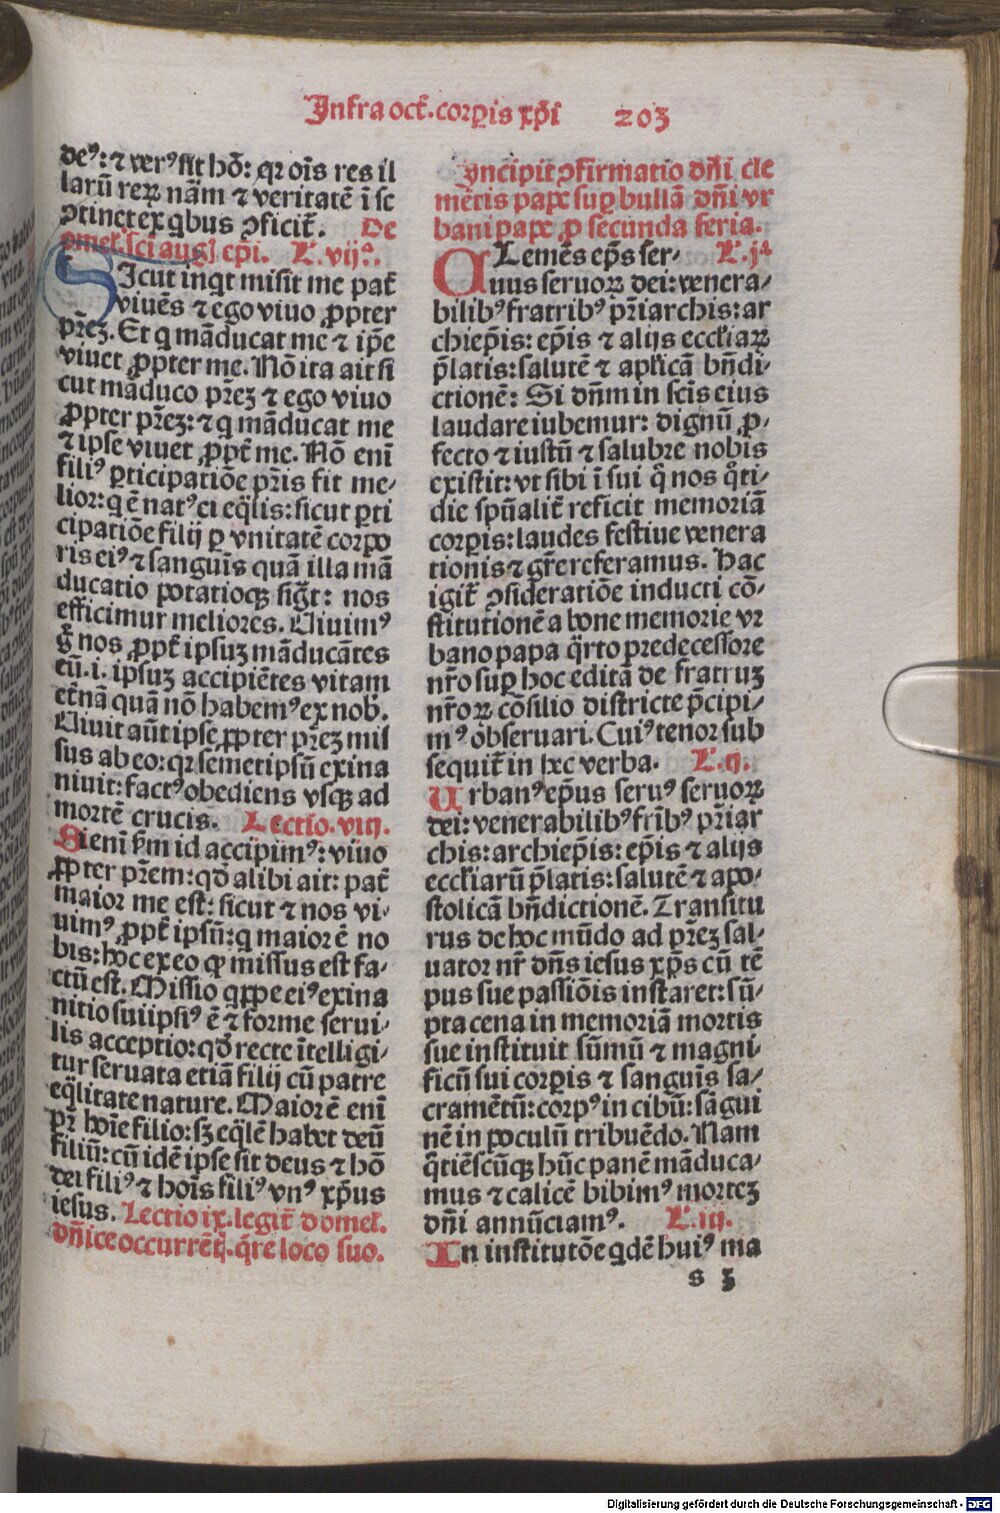 Infra oct̄. corꝑis xp̄i 203
deꝰ: ⁊ verꝰ sit hō: qr oīs res il
larū reꝝ nām ⁊ veritatē ī se
ꝯtinet ex qbus ꝯficit̄. De
omel. sci aug. ep̄i. L. vijᵃ.
SIcut inqt misit me pat̄
viuēs ⁊ ego viuo ꝓpter
pr̄eꝫ. Et q māducat me ⁊ ip̄e
viuet ꝓpter me. Nō ita ait si
cut māduco pr̄eꝫ ⁊ ego viuo
ꝓpter pr̄eꝫ: ⁊ q māducat me
⁊ ipse viuet ꝓpt̄ me. Nō enī
filiꝰ ꝑticipatiōe pr̄is fit me⸗
lior: q ē natꝰ ei eq̄lis: sicut ꝑti
cipatiōe filij ꝑ vnitatē corpo
ris eiꝰ ⁊ sanguīs quā illa mā
ducatio potatioqꝫ sigt̄: nos
efficimur meliores. Uiuimꝰ
g̊ nos ꝓpt̄ ipsuꝫ māducātes
eū. i. ipsuꝫ accipiētes vitam
et̄nā quā nō habemꝰ ex nob̄.
Uiuit aūt ipse ꝓpter pr̄eꝫ mis
sus ab eo: qr semetipsū exina
niuit: factꝰ obediens vsqꝫ ad
mortē crucis. Lectio. viij.
Si enī ẜm id accipimꝰ: viuo
ꝓpter pr̄em: qd̄ alibi ait: pat̄
maior me est: sicut ⁊ nos vi⸗
uimꝰ ꝓpt̄ ipsū: q maior ē no
bis: hoc ex eo qꝫ missus est fa⸗
ctū est. Missio qꝓpe eiꝰ exina
nitio sui ipsiꝰ ē ⁊ forme serui⸗
lis acceptio: qd̄ recte ītelligi⸗
tur seruata etiā filij cū patre
eq̄litate nature. Maior ē enī
pr̄ hoīe filio: sꝫ eq̄lē habet deū
filiū: cū idē ipse sit deus ⁊ hō
dei filiꝰ ⁊ hoīs filiꝰ vnꝰ xp̄us
iesus. Lectio ix. legit̄ d omel.
dn̄ice occurrēt̄. q̄re loco suo.
Incipit ꝯfirmatio dn̄i cle
mētis pape suꝑ bullā dn̄i vr
bani pape ꝓ secunda feria.
CLemēs ep̄s ser⸗ L. jᵃ
uus seruoꝝ dei: venera⸗
bilibꝰ fratribꝰ pr̄iarchis: ar
chiep̄is: ep̄is ⁊ alijs eccl̄iaꝝ
p̄latis: salutē ⁊ apl̄icā bn̄di⸗
ctionē: Si dn̄m in scīs eius
laudare iubemur: dignū ꝓ⸗
fecto ⁊ iustū ⁊ salubre nobis
existit: vt sibi ī sui q̄ nos q̊ti⸗
die spūalit̄ reficit memoriā
corꝑis: laudes festiue venera
tionis ⁊ gr̄e referamus. Hac
igit̄ ꝯsideratiōe inducti cō⸗
stitutionē a bone memorie vr
bano papa q̄rto predecessore
nr̄o suꝑ hoc editā de fratruꝫ
nr̄oꝝ cōsilio districte p̄cipi⸗
mꝰ obseruari. Cuiꝰ tenor sub
sequit̄ in hec verba. L. ij.
Urbanꝰ ep̄us seruꝰ seruoꝝ
dei: venerabilibꝰ fr̄ibꝰ pr̄iar
chis: archiep̄is: ep̄is ⁊ alijs
eccl̄iarū p̄latis: salutē ⁊ apo⸗
stolicā bn̄dictionē. Transitu
rus de hoc mūdo ad pr̄eꝫ sal⸗
uator nr̄ dn̄s iesus xp̄s cū tē
pus sue passiōis instaret: sū⸗
pta cena in memoriā mortis
sue instituit sūmū ⁊ magni⸗
ficū sui corꝑis ⁊ sanguīs sa⸗
cramētū: corpꝰ in cibū: sāgui
nē in poculū tribuēdo. Nam
q̊tiēscūqꝫ hūc panē māduca⸗
mus ⁊ calicē bibimꝰ morteꝫ
dn̄i annūciamꝰ. L. iij.
In institutōe qdē huiꝰ ma
s 3
Digitalisierung gefördert durch die Deutsche Forschungsgemeinschaft - DFG